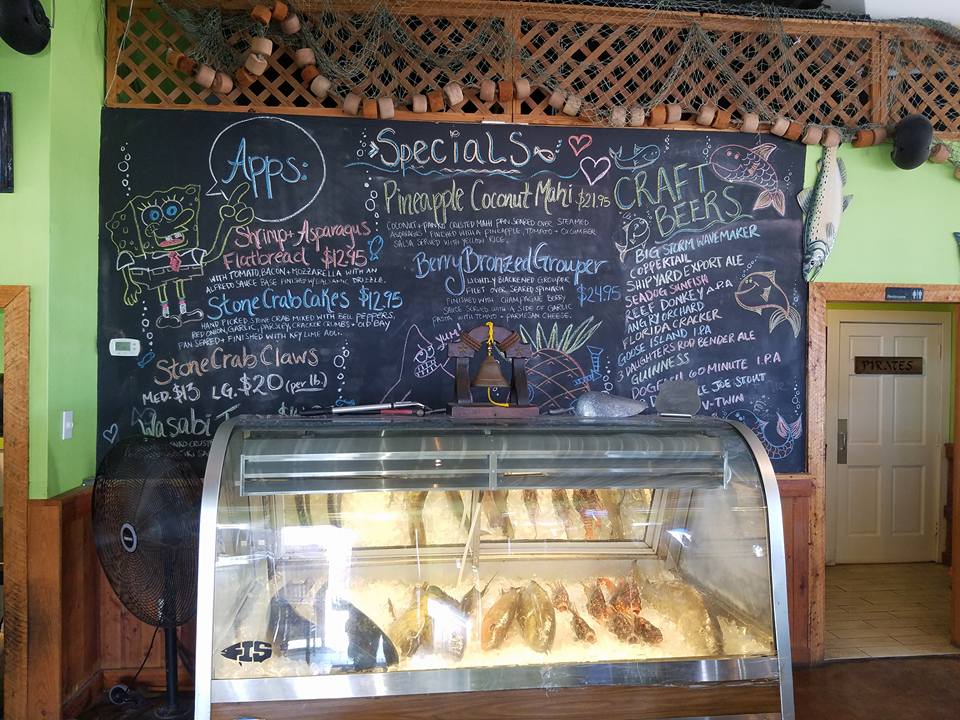 Apps:
Shrimp + Asparagus
Flatbread $12.95
WITH TOMATO, BACON + MOZZARELLA WITH AN
ALFREDO SAUCE BASE FINISHED W/ BALSAMIC DRIZZLE.
Stone Crab Cakes $12.95
HAND PICKED STONE CRAB MIXED WITH BELL PEPPERS,
RED ONION, GARLIC, PARSLEY, CRACKER CRUMBS + OLD BAY
PAN SEARED + FINISHED WITH KEY LIME AOLI.
Stone Crab Claws
MED. $13 LG. $20 (per lb.)
Wasabi
Specials
Pineapple Coconut Mahi $21.95
COCONUT + PANKO CRUSTED MAHI PAN SEARED OVER STEAMED
ASPARAGUS FINISHED WITH A PINEAPPLE, TOMATO + CUCUMBER
SALSA SERVED WITH YELLOW RICE.
Berry Bronzed Grouper
$24.95
LIGHTLY BLACKENED GROUPER
FILET OVER SEARED SPINACH
FINISHED WITH CHAMPAGNE BERRY
SAUCE SERVED WITH A SIDE OF GARLIC
PASTA WITH TOMATO + PARMESAN CHEESE.
YUM!
CRAFT
BEERS
BIG STORM WAVEMAKER
COPPERTAIL
SHIPYARD EXPORT ALE
SEADOG SUNFISH
REEF DONKEY A.P.A
ANGRY ORCHARD
FLORIDA CRACKER
GOOSE ISLAND I.PA
3 DAUGHTERS ROD BENDER ALE
GUINNESS
DOGFISH 60 MINUTE I.P.A
JOE STOUT
V-TWIN
PIRATES
IS